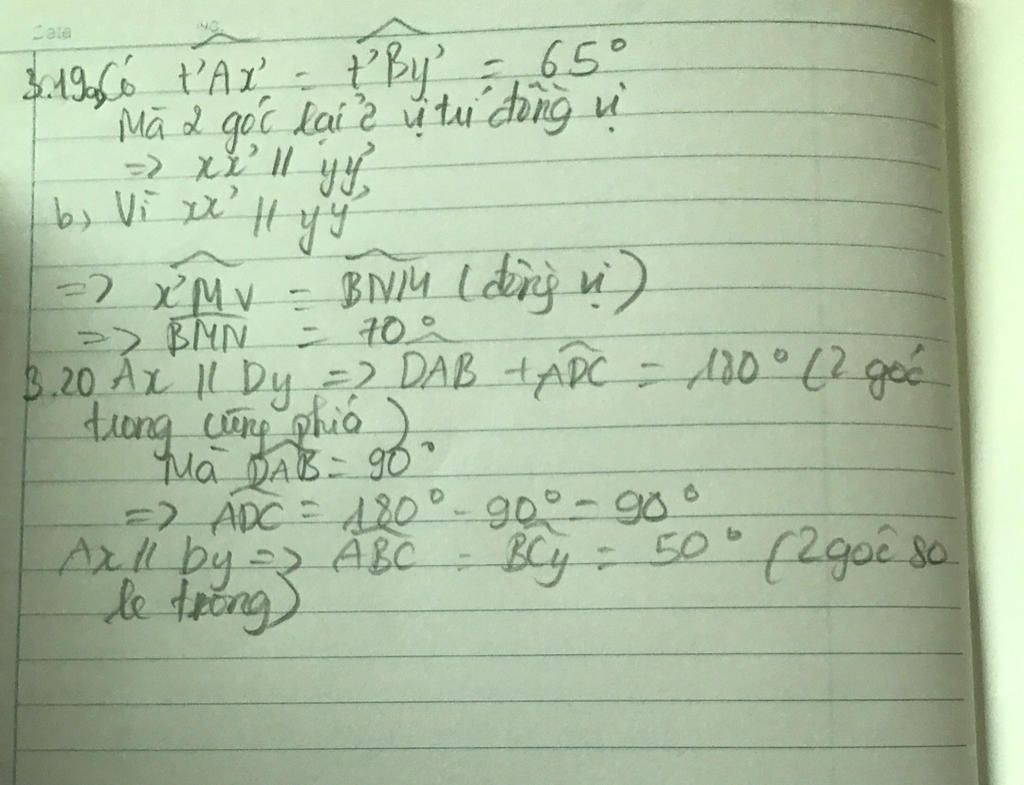 Date No.
3.19a, Có t'Ax' = t'By' = 65°
Mà 2 góc lại ở vị trí đồng vị
=> xx' // yy'
b, Vì xx' // yy'
=> x'Mv = BNM (đồng vị)
=> BMN = 70°
3.20 Ax // Dy => DAB + ADC = 180° (2 góc
trong cùng phía)
Mà DAB = 90°
=> ADC = 180° - 90° = 90°
Ax // Dy => ABC = BCy = 50° (2 góc so
le trong)